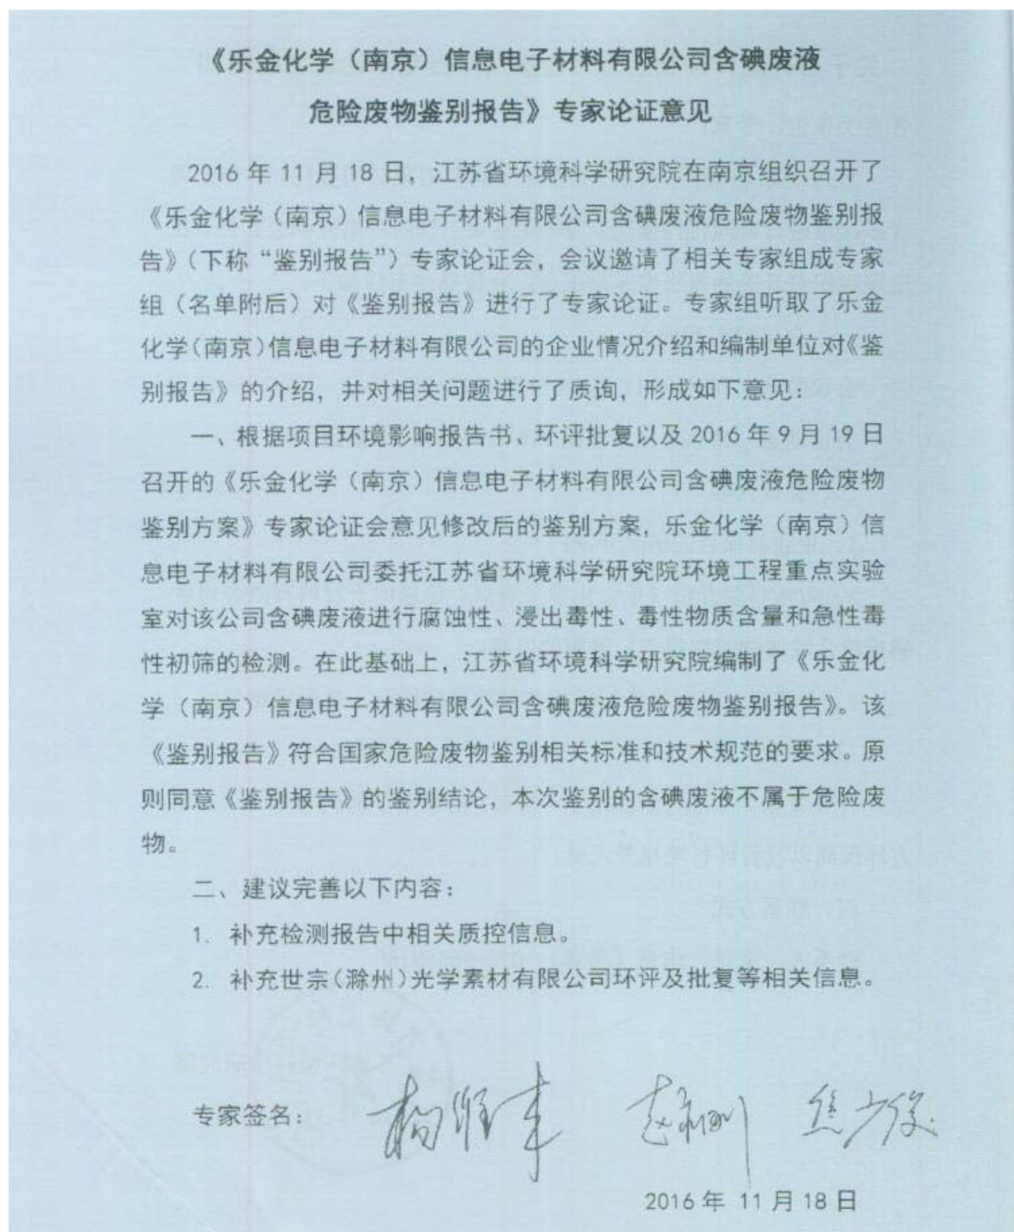 《乐金化学（南京）信息电子材料有限公司含碘废液
危险废物鉴别报告》专家论证意见
2016 年 11 月 18 日，江苏省环境科学研究院在南京组织召开了
《乐金化学（南京）信息电子材料有限公司含碘废液危险废物鉴别报
告》（下称“鉴别报告”）专家论证会，会议邀请了相关专家组成专家
组（名单附后）对《鉴别报告》进行了专家论证。专家组听取了乐金
化学（南京）信息电子材料有限公司的企业情况介绍和编制单位对《鉴
别报告》的介绍，并对相关问题进行了质询，形成如下意见：
一、根据项目环境影响报告书、环评批复以及 2016 年 9 月 19 日
召开的《乐金化学（南京）信息电子材料有限公司含碘废液危险废物
鉴别方案》专家论证会意见修改后的鉴别方案，乐金化学（南京）信
息电子材料有限公司委托江苏省环境科学研究院环境工程重点实验
室对该公司含碘废液进行腐蚀性、浸出毒性、毒性物质含量和急性毒
性初筛的检测。在此基础上，江苏省环境科学研究院编制了《乐金化
学（南京）信息电子材料有限公司含碘废液危险废物鉴别报告》。该
《鉴别报告》符合国家危险废物鉴别相关标准和技术规范的要求。原
则同意《鉴别报告》的鉴别结论，本次鉴别的含碘废液不属于危险废
物。
二、建议完善以下内容：
1. 补充检测报告中相关质控信息。
2. 补充世宗（滁州）光学素材有限公司环评及批复等相关信息。
专家签名：
2016 年 11 月 18 日